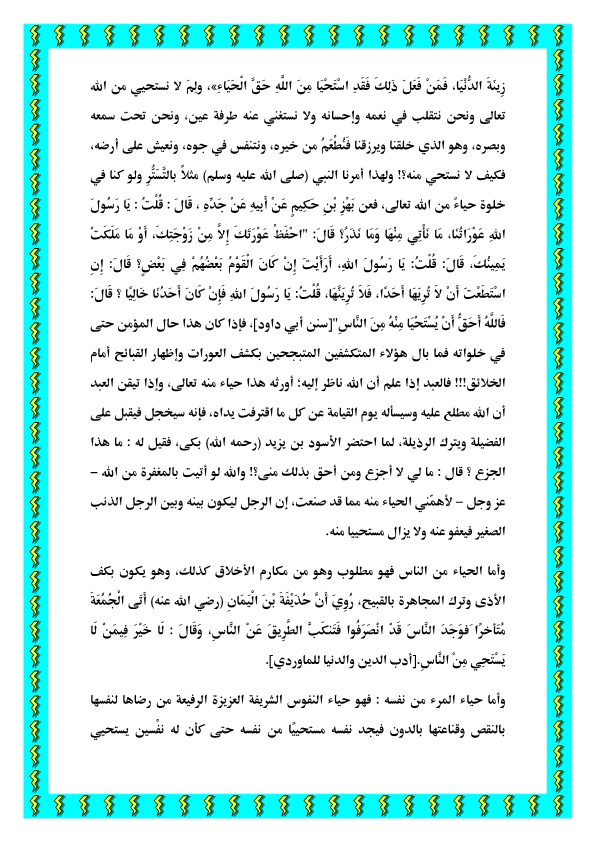 زِينَةَ الدُّنْيَا، فَمَنْ فَعَلَ ذَلِكَ فَقَدِ اسْتَحْيَا مِنَ اللَّهِ حَقَّ الْحَيَاءِ»، ولمَ لا نستحيي من الله
تعالى ونحن نتقلب في نعمه وإحسانه ولا نستغني عنه طرفة عين، ونحن تحت سمعه
وبصره، وهو الذي خلقنا ويرزقنا فَنُطْعَمُ من خيره، ونتنفس في جوه، ونعيش على أرضه،
فكيف لا نستحي منه؟! ولهذا أمرنا النبي (صلى الله عليه وسلم) مثلاً بالتَّسَتُّرِ ولو كنا في
خلوة حياءً من الله تعالى، فعن بَهْزِ بْنِ حَكِيمٍ عَنْ أَبِيهِ عَنْ جَدِّهِ ، قَالَ : قُلْتُ : يَا رَسُولَ
اللهِ عَوْرَاتُنَا، مَا نَأْتِي مِنْهَا وَمَا نَذَرُ؟ قَالَ: "احْفَظْ عَوْرَتَكَ إِلاَّ مِنْ زَوْجَتِكَ، أَوْ مَا مَلَكَتْ
يَمِينُكَ، قَالَ: قُلْتُ: يَا رَسُولَ اللهِ، أَرَأَيْتَ إِنْ كَانَ الْقَوْمُ بَعْضُهُمْ فِي بَعْضٍ؟ قَالَ: إِنِ
اسْتَطَعْتَ أَنْ لاَ تُرِيَهَا أَحَدًا، فَلاَ تُرِيَنَّهَا، قُلْتُ: يَا رَسُولَ اللهِ فَإِنْ كَانَ أَحَدُنَا خَالِيًا ؟ قَالَ:
فَاللَّهُ أَحَقُّ أَنْ يُسْتَحْيَا مِنْهُ مِنَ النَّاسِ"[سنن أبي داود]، فإذا كان هذا حال المؤمن حتى
في خلواته فما بال هؤلاء المتكشفين المتبجحين بكشف العورات وإظهار القبائح أمام
الخلائق!!! فالعبد إذا علم أن الله ناظر إليه؛ أورثه هذا حياء منه تعالى، وإذا تيقن العبد
أن الله مطلع عليه وسيسأله يوم القيامة عن كل ما اقترفت يداه، فإنه سيخجل فيقبل على
الفضيلة ويترك الرذيلة، لما احتضر الأسود بن يزيد (رحمه الله) بكى، فقيل له : ما هذا
الجزع ؟ قال : ما لي لا أجزع ومن أحق بذلك منى؟! والله لو أتيت بالمغفرة من الله –
عز وجل – لأهمّني الحياء منه مما قد صنعت، إن الرجل ليكون بينه وبين الرجل الذنب
الصغير فيعفو عنه ولا يزال مستحييا منه.
وأما الحياء من الناس فهو مطلوب وهو من مكارم الأخلاق كذلك، وهو يكون بكف
الأذى وترك المجاهرة بالقبيح، رُوِيَ أَنَّ حُذَيْفَةَ بْنَ الْيَمَانِ (رضي الله عنه) أَتَى الْجُمُعَةَ
مُتَأخرًا َفوَجَدَ النَّاسَ قَدْ انْصَرَفُوا فَتَنَكَّبَ الطَّرِيقَ عَنْ النَّاسِ، وَقَالَ : لَا خَيْرَ فِيمَنْ لَا
يَسْتَحِي مِنْ النَّاسِ.[أدب الدين والدنيا للماوردي].
وأما حياء المرء من نفسه : فهو حياء النفوس الشريفة العزيزة الرفيعة من رضاها لنفسها
بالنقص وقناعتها بالدون فيجد نفسه مستحييًا من نفسه حتى كأن له نفْسين يستحيي